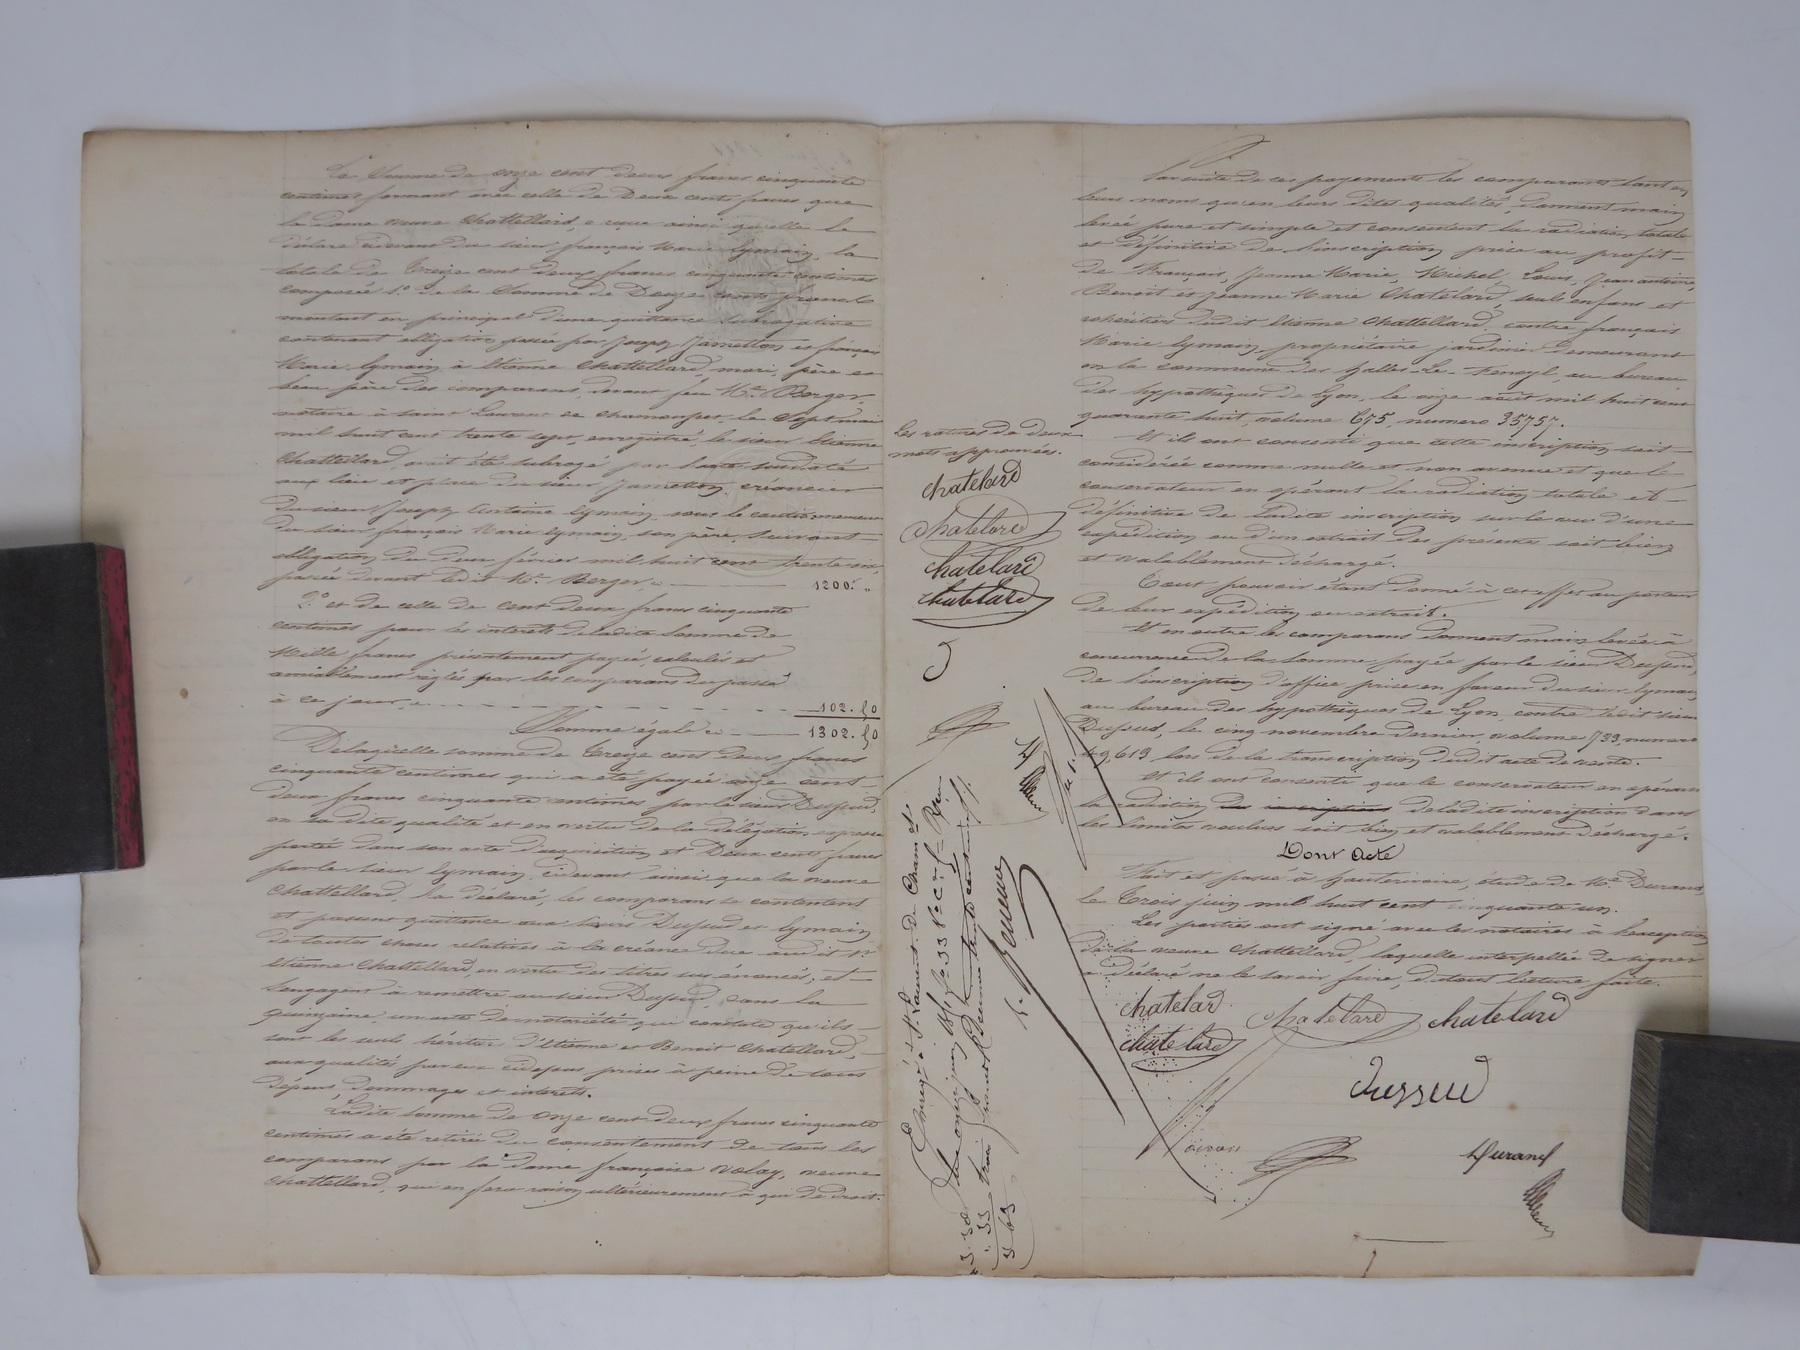 La somme de onze cent deux francs cinquante
centimes formant avec celle de Deux cents francs que
la dame veuve Chattellard, a reçue ainsi qu'elle le
déclare cidevant du sieur françois Marie Eymain, la
totale de Treize cent deux francs cinquante centimes
composée 1.° de la somme de Douze cents francs
montant en principal d'une quittance subrogative
contenant obligation passée par Joseph Jametton et françois
Marie Eymain à Etienne Chattellard, mari, père et
beau père des comparans, devant feu Me. Berger,
notaire à saint Laurent de chamousset, le sept mai
mil huit cent trente sept, enregistré, le sieur Etienne
Chattellard, avait été subrogé par l'acte susdaté
aux lieu et place du sieur Jametton, créancier
du sieur Joseph Antoine Eymain, sous le cautionnement
du sieur françois Marie Eymain, son père, suivant
obligation du deux février mil huit cent trente six,
passée devant ledit Me. Berger, ci 1200. "
2.° et de celle de cent deux francs cinquante
centimes pour les interets de ladite somme de
Mille francs présentement payée, calculés et
amiablement réglés par les comparans du passé
à ce jour, ci 102. 50
Somme égale ci 1302. 50
De laquelle somme de Treize cent deux francs
cinquante centimes qui a été payée onze cent
deux francs cinquante centimes par le sieur Dussud,
en sa dite qualité et en vertu de la délégation expresse
portée dans son acte d'acquisition et Deux cents francs
par le sieur Eymain, cidevant ainsi que la veuve
Chattellard, l'a déclaré, les comparans se contentent
et passent quittance aux sieurs Dussud et Eymain
de toutes choses relatives à la créance due audit Sr
Etienne Chattellard, en vertu des titres sus énoncés, et
s'engagent à remettre au sieur Dussud, dans la
quinzaine, un acte de notoriété qui constate qu'ils
sont les seuls héritiers d'Etienne et Benoit Chatellard,
aux qualités par eux cidessus prises à peine de tous
dépens, dommages et interets.
Ladite somme de onze cent deux francs cinquante
centimes a été retirée du consentement de tous les
comparans par la dame françoise Volay, veuve
Chattellard, qui en fera raison ultérieurement à qui de droit.
Les ratures de deux
mots approuvées.
Chatelard
Chatelard
Chatelard
Chatelard
Enregé à St. Laurent de Chamet
le onze juin 1851 fo 33 Vo Cer
trois francs trente centimes
3.30
.33
3 63
Par suite de ces payements les comparants tant en
leurs noms qu'en leurs dites qualités, donnent main
levée pure et simple et consentent la radiation totale
et définitive de l'inscription prise au profit
de François, Jeanne Marie, Michel, Louis, Jean antoine,
Benoit et Jeanne Marie Chatelard, seuls enfans et
héritiers dudit Etienne Chattellard, contre françois
Marie Eymain, propriétaire jardinier demeurant
en la commune des halles-le-fenoyl, au bureau
des hypothèques de Lyon, le onze août mil huit cent
quarante huit, volume 675, numero 35757.
Et ils ont consenti que cette inscription soit
considérée comme nulle et non avenue et que le
conservateur en opérant la radiation totale et
définitive de ladite inscription sur le vu d'une
expédition ou d'un extrait des présentes soit bien
et valablement déchargé.
Tout pouvoir étant donné à cet effet au porteur
de leur expédition ou extrait.
Et en outre les comparans donnent main levée à
concurrence de la somme payée par le sieur Dussud,
de l'inscription d'office prise en faveur du sieur Eymain
au bureau des hypothèques de Lyon, contre ledit sieur
Dussud, le cinq novembre dernier, volume 733, numero
49,613 lors de la transcription dudit acte de vente.
Et ils ont consenti que le conservateur en opérant
la radiation des inscriptions de ladite inscription dans
les limites voulues soit bien et valablement déchargé.
Dont Acte
Fait et passé à hauterivoire, étude de Me Durand
le Trois juin mil huit cent cinquante un.
Les parties ont signé avec les notaires à l'exception
de la veuve Chattellard, laquelle interpellée de signer
a déclaré ne le savoir faire, du tout lecture faite.
Chatelard
Chatelard
Chatelard
Chatelard
Dussud
Durand